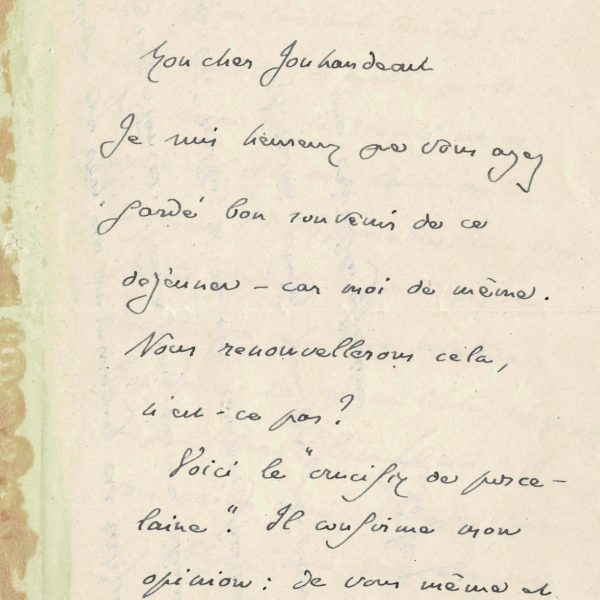 Mon cher Jouhandeau
Je suis heureux que vous ayez
gardé bon souvenir de ce
dejeuner – car moi de même.
Nous renouvellerons cela,
n'est-ce pas?
Voici le "crucifix de porce-
laine". Il confirme mon
opinion : de vous même et